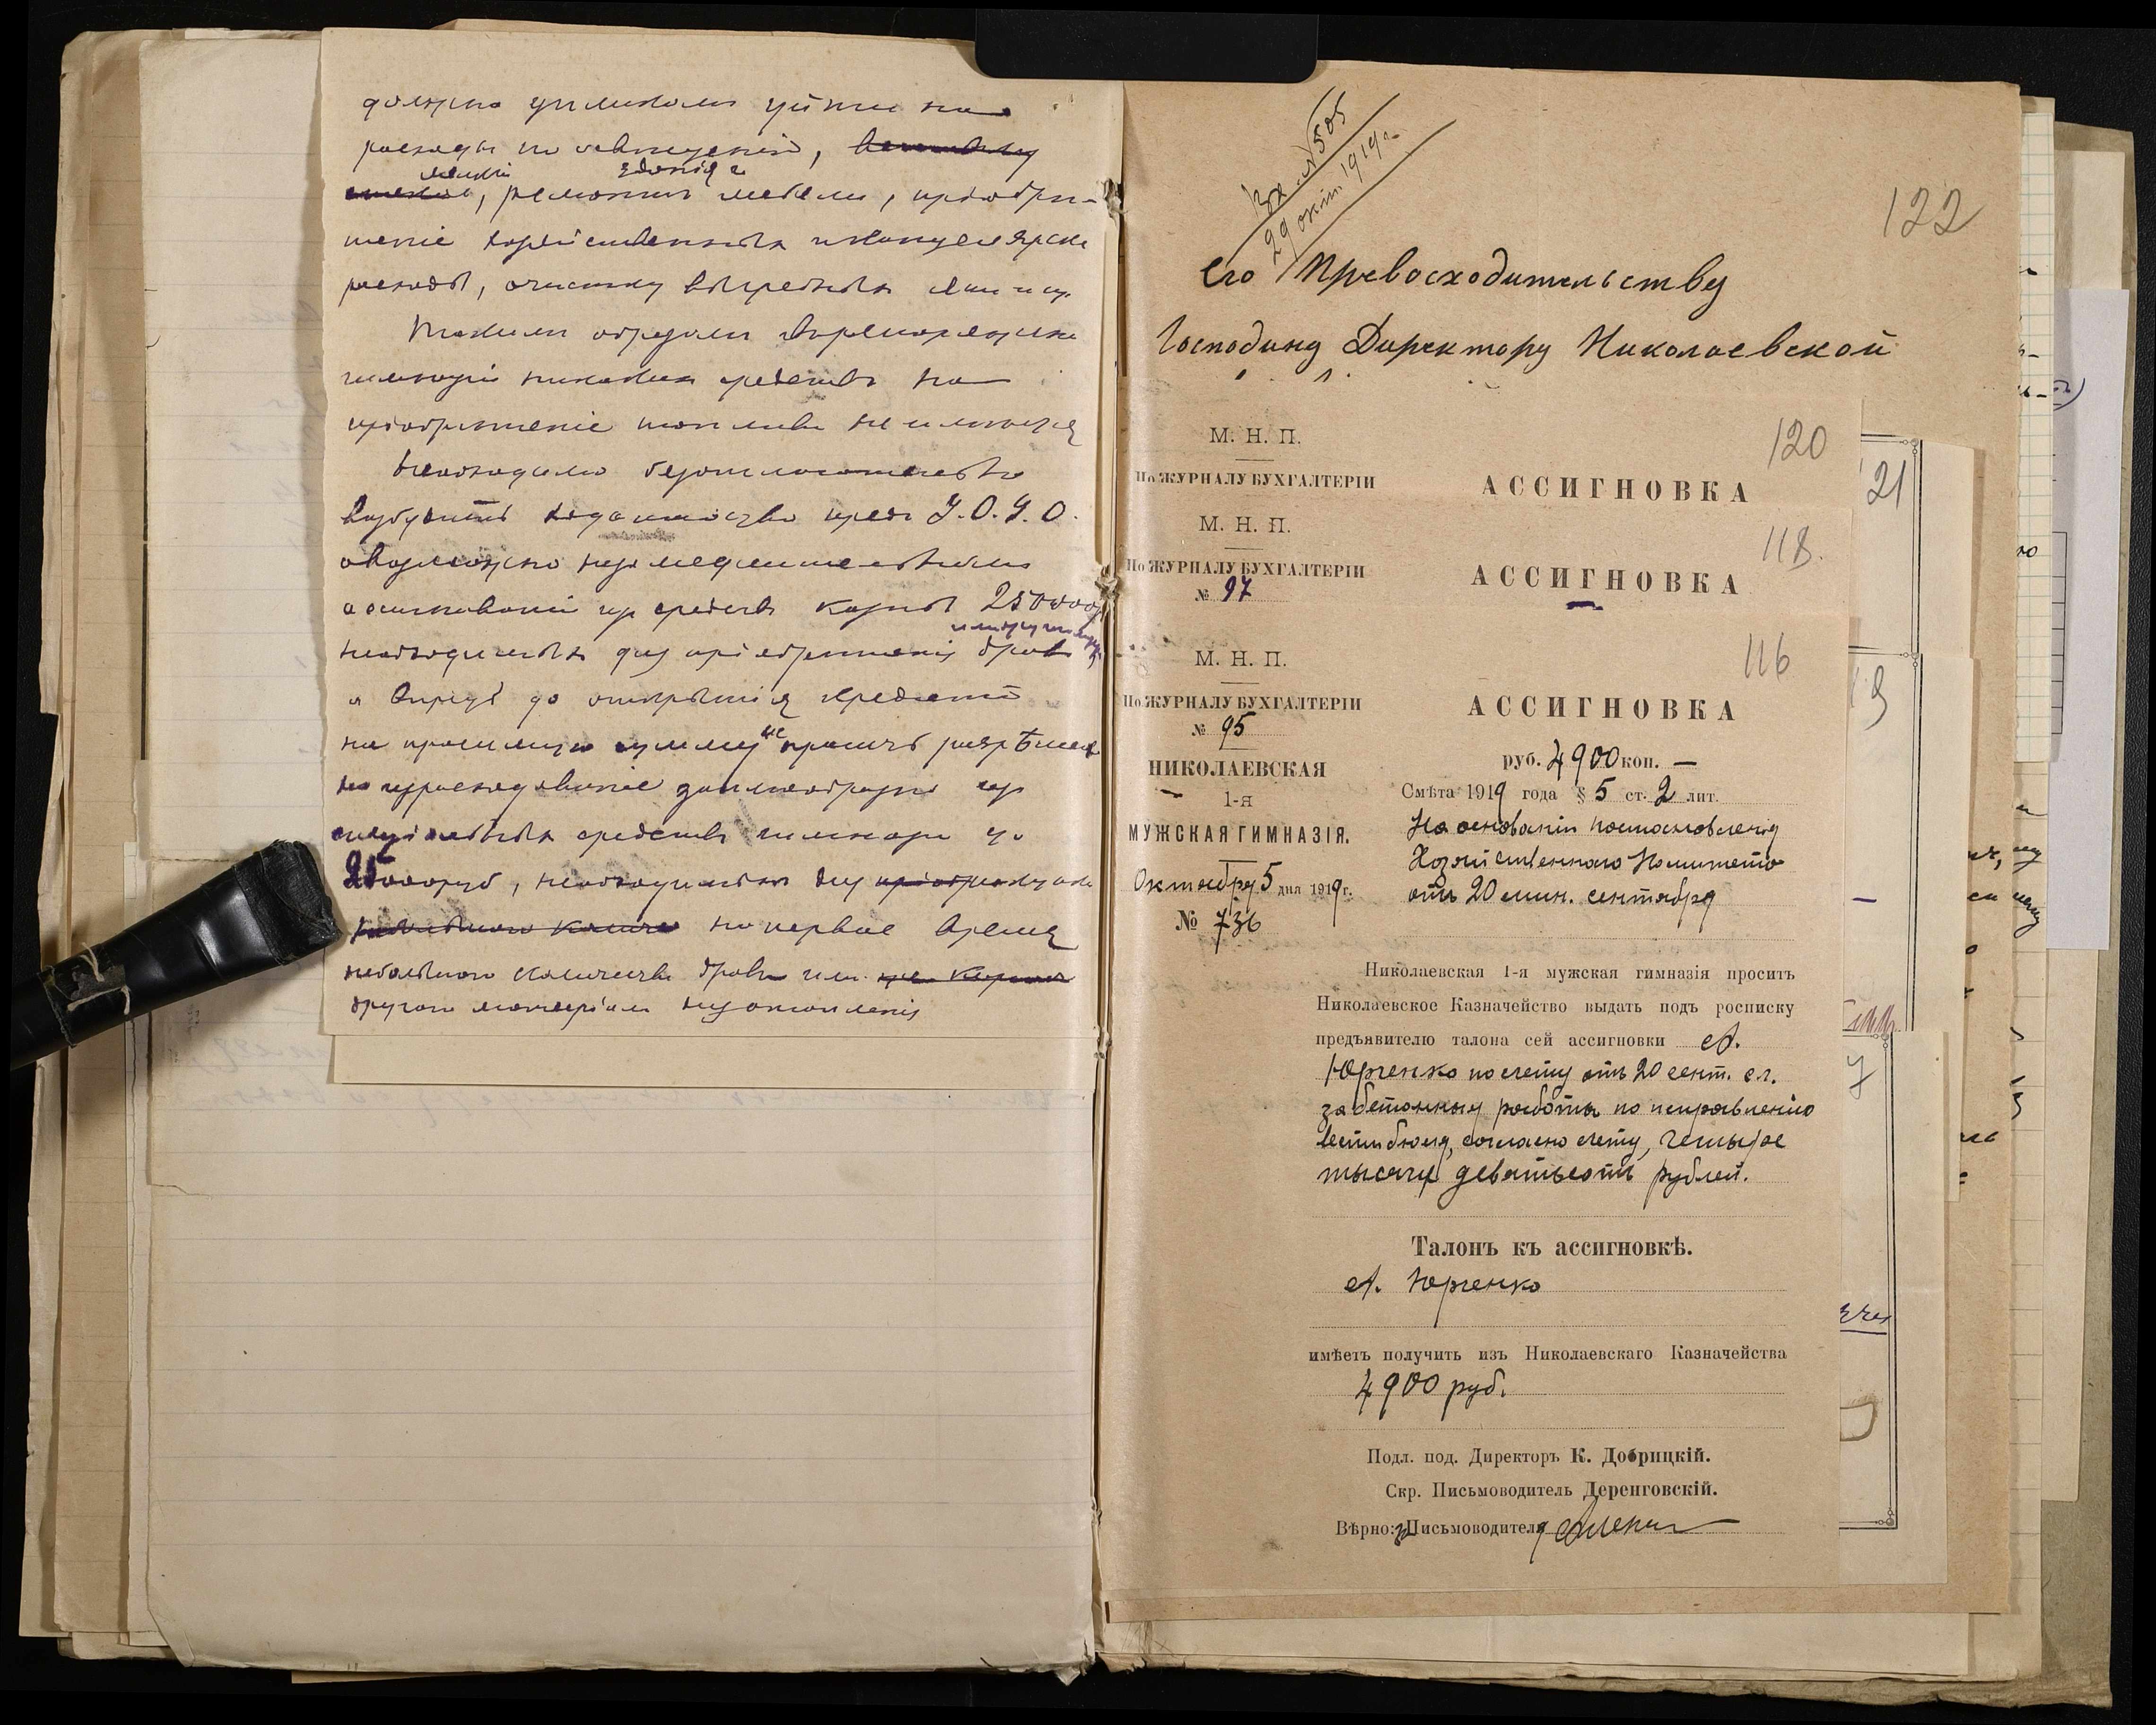 должна цѣликомъ уйти на
расходы по освѣщенію,
мелкій зданія и
ремонтъ мебели, пріобрѣ-
теніе хозяйственныхъ и канцелярск
расходы, очистку выгребныхъ ямъ и пр.
Такимъ образомъ въ распоряженіи
гимназіи никакихъ средствъ на
пріобрѣтеніе топлива не имѣется
Необходимо безотлагательно
возбудить ходатайство предъ У.О.У.О.
о возможно незамедлительномъ
ассигнованіи изъ средствъ казны 25000 р
необходимыхъ для пріобрѣтенія дровъ
а впредь до открытія кредита
на просимую сумму просить разрѣшен
на израсходованіе заимообразно изъ
спеціальныхъ средствъ гимназіи до
25000 руб, необходимыхъ для
на первое время
небольшого количества дровъ или
другого матеріала для отопленія
Вх. № 505
29 окт. 1919 г.
122
Его Превосходительству
Господину Директору Николаевской
120
М. Н. П.
По ЖУРНАЛУ БУХГАЛТЕРІИ
АССИГНОВКА
21
118.
М. Н. П.
По ЖУРНАЛУ БУХГАЛТЕРІИ
АССИГНОВКА
№ 97
116
М. Н. П.
По ЖУРНАЛУ БУХГАЛТЕРІИ
АССИГНОВКА
№ 95
руб. 4900 коп. —
НИКОЛАЕВСКАЯ
1-я
МУЖСКАЯ ГИМНАЗІЯ.
Октября 5 дня 1919 г.
№ 736
Смѣта 1919 года § 5 ст. 2 лит.
На основаніи постановленія
Хозяйственнаго Комитета
отъ 20 мин. сентября
Николаевская 1-я мужская гимназія проситъ
Николаевское Казначейство выдать подъ росписку
предъявителю талона сей ассигновки А.
Юрченко по счету отъ 20 сент. с.г.
за бетонныя работы по исправленію
вестибюля, согласно счету, четыре
тысячи девятьсотъ рублей.
Талонъ къ ассигновкѣ.
А. Юрченко
имѣетъ получить изъ Николаевскаго Казначейства
4900 руб.
Подл. под. Директоръ К. Добрицкій.
Скр. Письмоводитель Деренговскій.
Вѣрно: за Письмоводителя